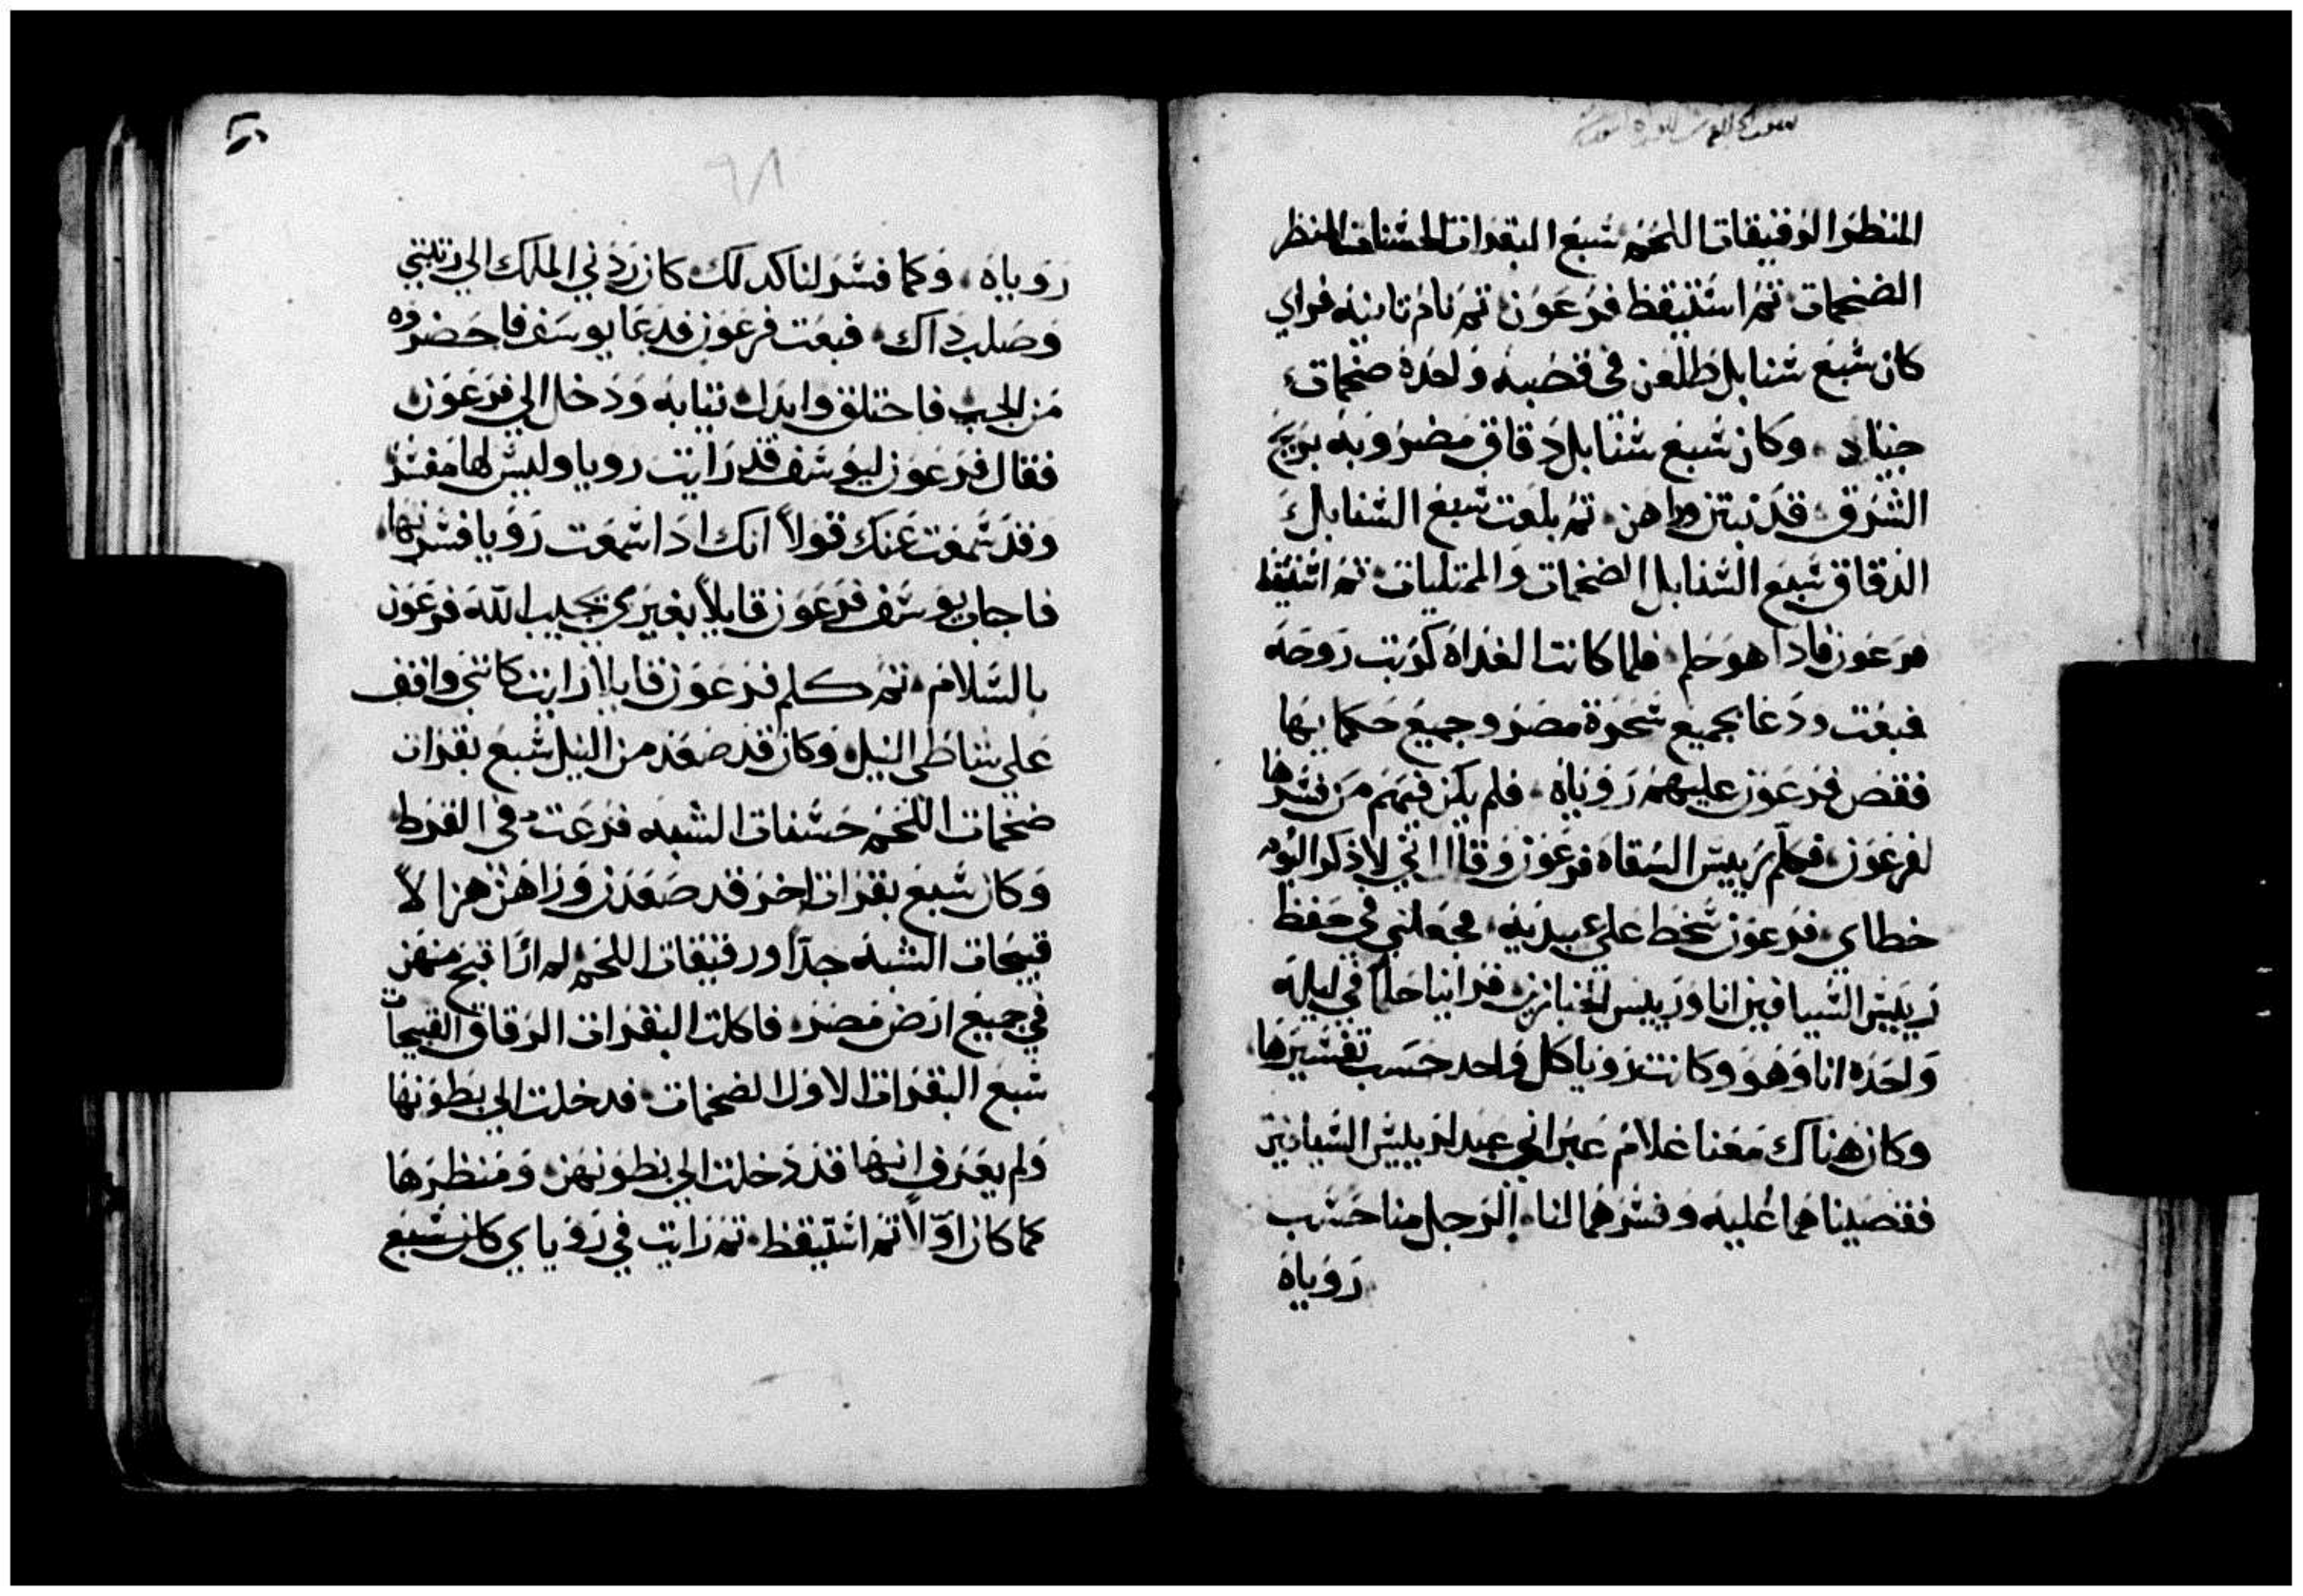 المنظر الرقيقات اللحم سبع البقرات الحسنات المنظر
الضخمات ثم استيقظ فرعون ثم نام تانيه فراي
كان سبع سنابل طلعن في قصبه واحده ضخمات
جياد وكان سبع سنابل دقاق مضروبه بريح
الشرق قد نبتن وراهن ثم بلعت سبع السنابل
الدقاق سبع السنابل الضخمات والممتليات ثم استيقظ
فرعون فادا هو حلم فلما كانت الغداه كربت روحه
فبعت ودعا بجميع سحرة مصر وجميع حكمايها
فقص فرعون عليهم روياه فلم يكن فيهم من فسرها
لفرعون فكلم رييس السقاه فرعون وقال اني لاذكر اليوم
خطاي فرعون سخط علي عبيديه فجعلني في حفظ
رييس السيافين انا ورييس الخبازين فراينا حلما في ليله
واحده انا وهو وكانت رويا كل واحد حسب تفسيرها
وكان هناك معنا غلام عبراني عبد لرييس السيافين
فقصيناهما عليه وفسرهما لنا الرجل منا حسب
روياه
٦٨
روياه وكما فسر لنا كدلك كان ردني الملك الي رتبتي
وصلب داك فبعت فرعون فدعا يوسف فاحضروه
من الجب فاحتلق وابدل تيابه ودخل الي فرعون
فقال فرعون ليوسف قد رايت رويا وليس لها مفسر
وقد سمعت عنك قولاً انك ادا سمعت رويا فسرتها
فاجاب يوسف فرعون قايلاً بغيري يجيب الله فرعون
بالسلام ثم كلم فرعون قايلا رايت كانني واقف
علي شاطي النيل وكان قد صعد من النيل سبع بقرات
ضخمات اللحم حسنات الشبه فرعت في القرط
وكان سبع بقرات اخر قد صعدن وراهن هزالاً
قبيحات الشبه جداً ورقيقات اللحم لم ار اقبح منهن
في جميع ارض مصر فاكلت البقرات الرقاق القبيحات
سبع البقرات الاول الضخمات فدخلت الي بطونها
ولم يعرف انها قد دخلت الي بطونهن ومنظرها
كما كان اوّلاً ثم استيقظ ثم رايت في روياي كان سبع